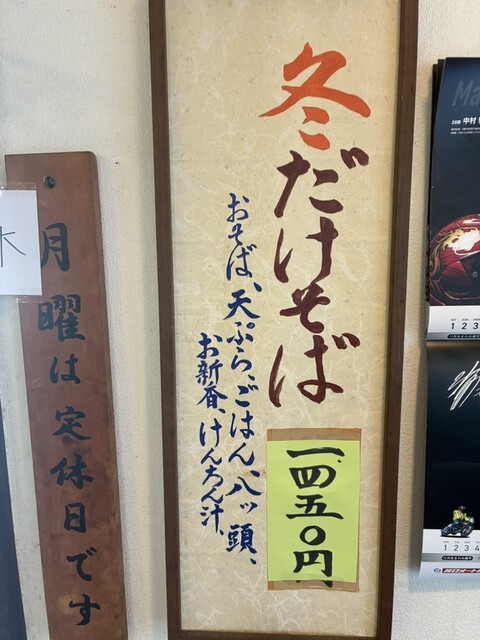 冬だけそば
おそば、天ぷら、ごはん、八ッ頭、
お新香、けんちん汁、
一四五〇円
木
月曜は定休日です
Ma
中村
1 2 3
1 2 3 4